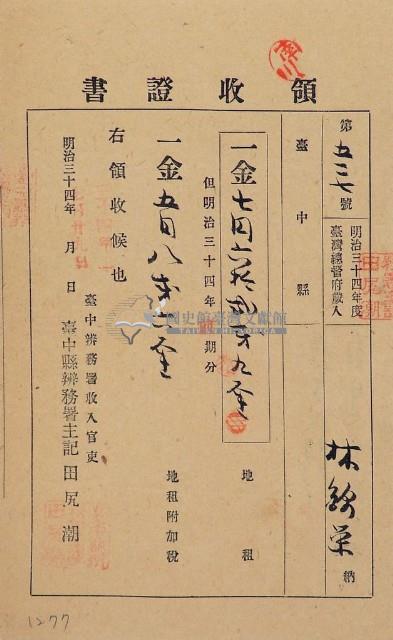 領收證書
第五三七號
明治三十四年度
臺灣總督府歲入
林錦榮 納
臺中縣
一金七円六拾貳才九厘 地租
但明治三十四年 期分
一金五円八才 厘 地租附加稅
右領收候也
明治三十四年 月 日
臺中辨務署收入官吏
臺中縣辨務署主記田尻潮
國史館臺灣文獻館
TAIWAN HISTORICA
1277